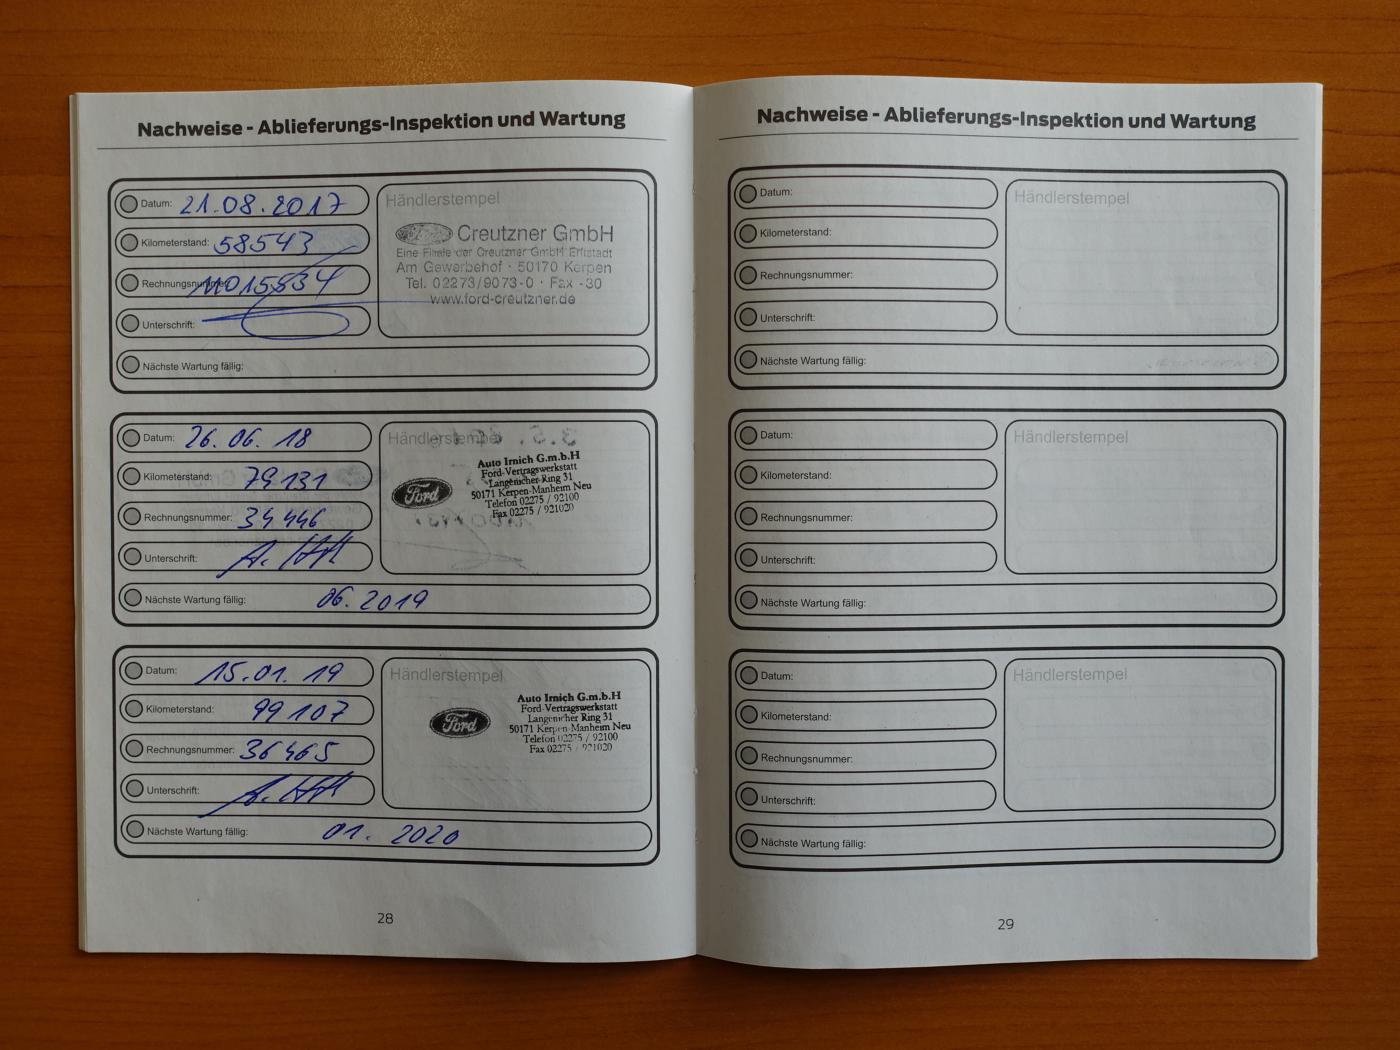 Nachweise - Ablieferungs-Inspektion und Wartung
Datum: 21.08.2017
Kilometerstand: 58543
Rechnungsnummer:
Unterschrift:
Nächste Wartung fällig:
Händlerstempel
Ford Creutzner GmbH
Eine Filiale der Creutzner GmbH Erftstadt
Am Gewerbehof · 50170 Kerpen
Tel. 02273/9073-0 · Fax -30
www.ford-creutzner.de
Datum: 26.06.18
Kilometerstand: 79131
Rechnungsnummer: 34446
Unterschrift:
Nächste Wartung fällig: 06.2019
Händlerstempel
Ford
Auto Irnich G.m.b.H
Ford-Vertragswerkstatt
Langenicher Ring 31
50171 Kerpen-Manheim Neu
Telefon 02275 / 92100
Fax 02275 / 921020
Datum: 15.01.19
Kilometerstand: 99107
Rechnungsnummer: 36465
Unterschrift:
Nächste Wartung fällig: 01.2020
Händlerstempel
Ford
Auto Irnich G.m.b.H
Ford-Vertragswerkstatt
Langenicher Ring 31
50171 Kerpen-Manheim Neu
Telefon 02275 / 92100
Fax 02275 / 921020
28
Nachweise - Ablieferungs-Inspektion und Wartung
Datum:
Kilometerstand:
Rechnungsnummer:
Unterschrift:
Nächste Wartung fällig:
Händlerstempel
Datum:
Kilometerstand:
Rechnungsnummer:
Unterschrift:
Nächste Wartung fällig:
Händlerstempel
Datum:
Kilometerstand:
Rechnungsnummer:
Unterschrift:
Nächste Wartung fällig:
Händlerstempel
29